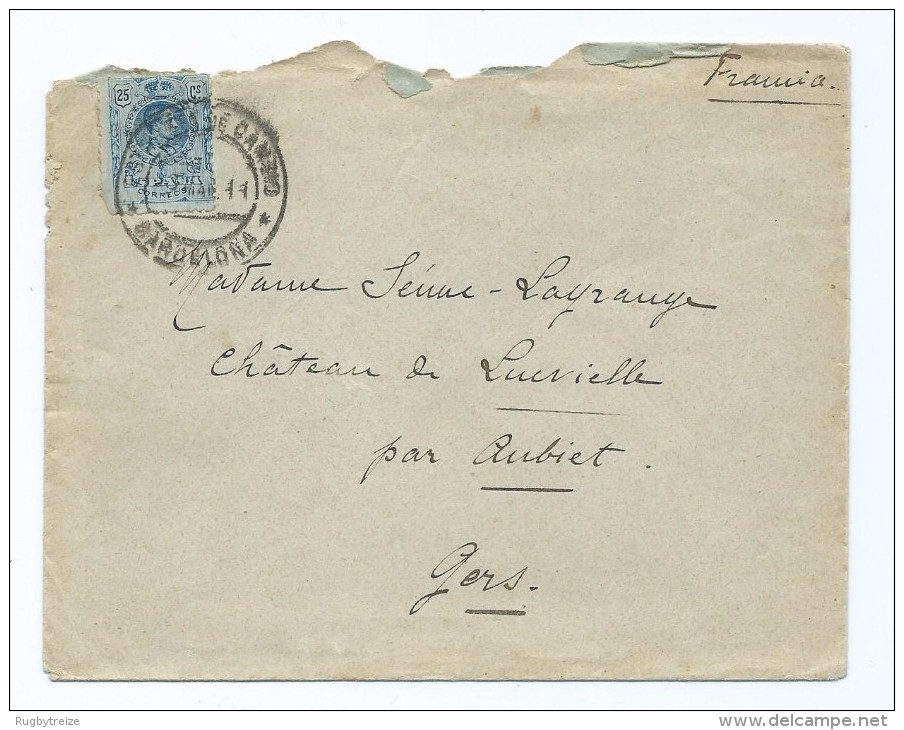 Francia.
25 Cs
CORREOS
11
BARCELONA
Madame Sénac-Lagrange
Château de Luvielle
par Aubiet.
Gers.
Rugbytreize
www.delcampe.net